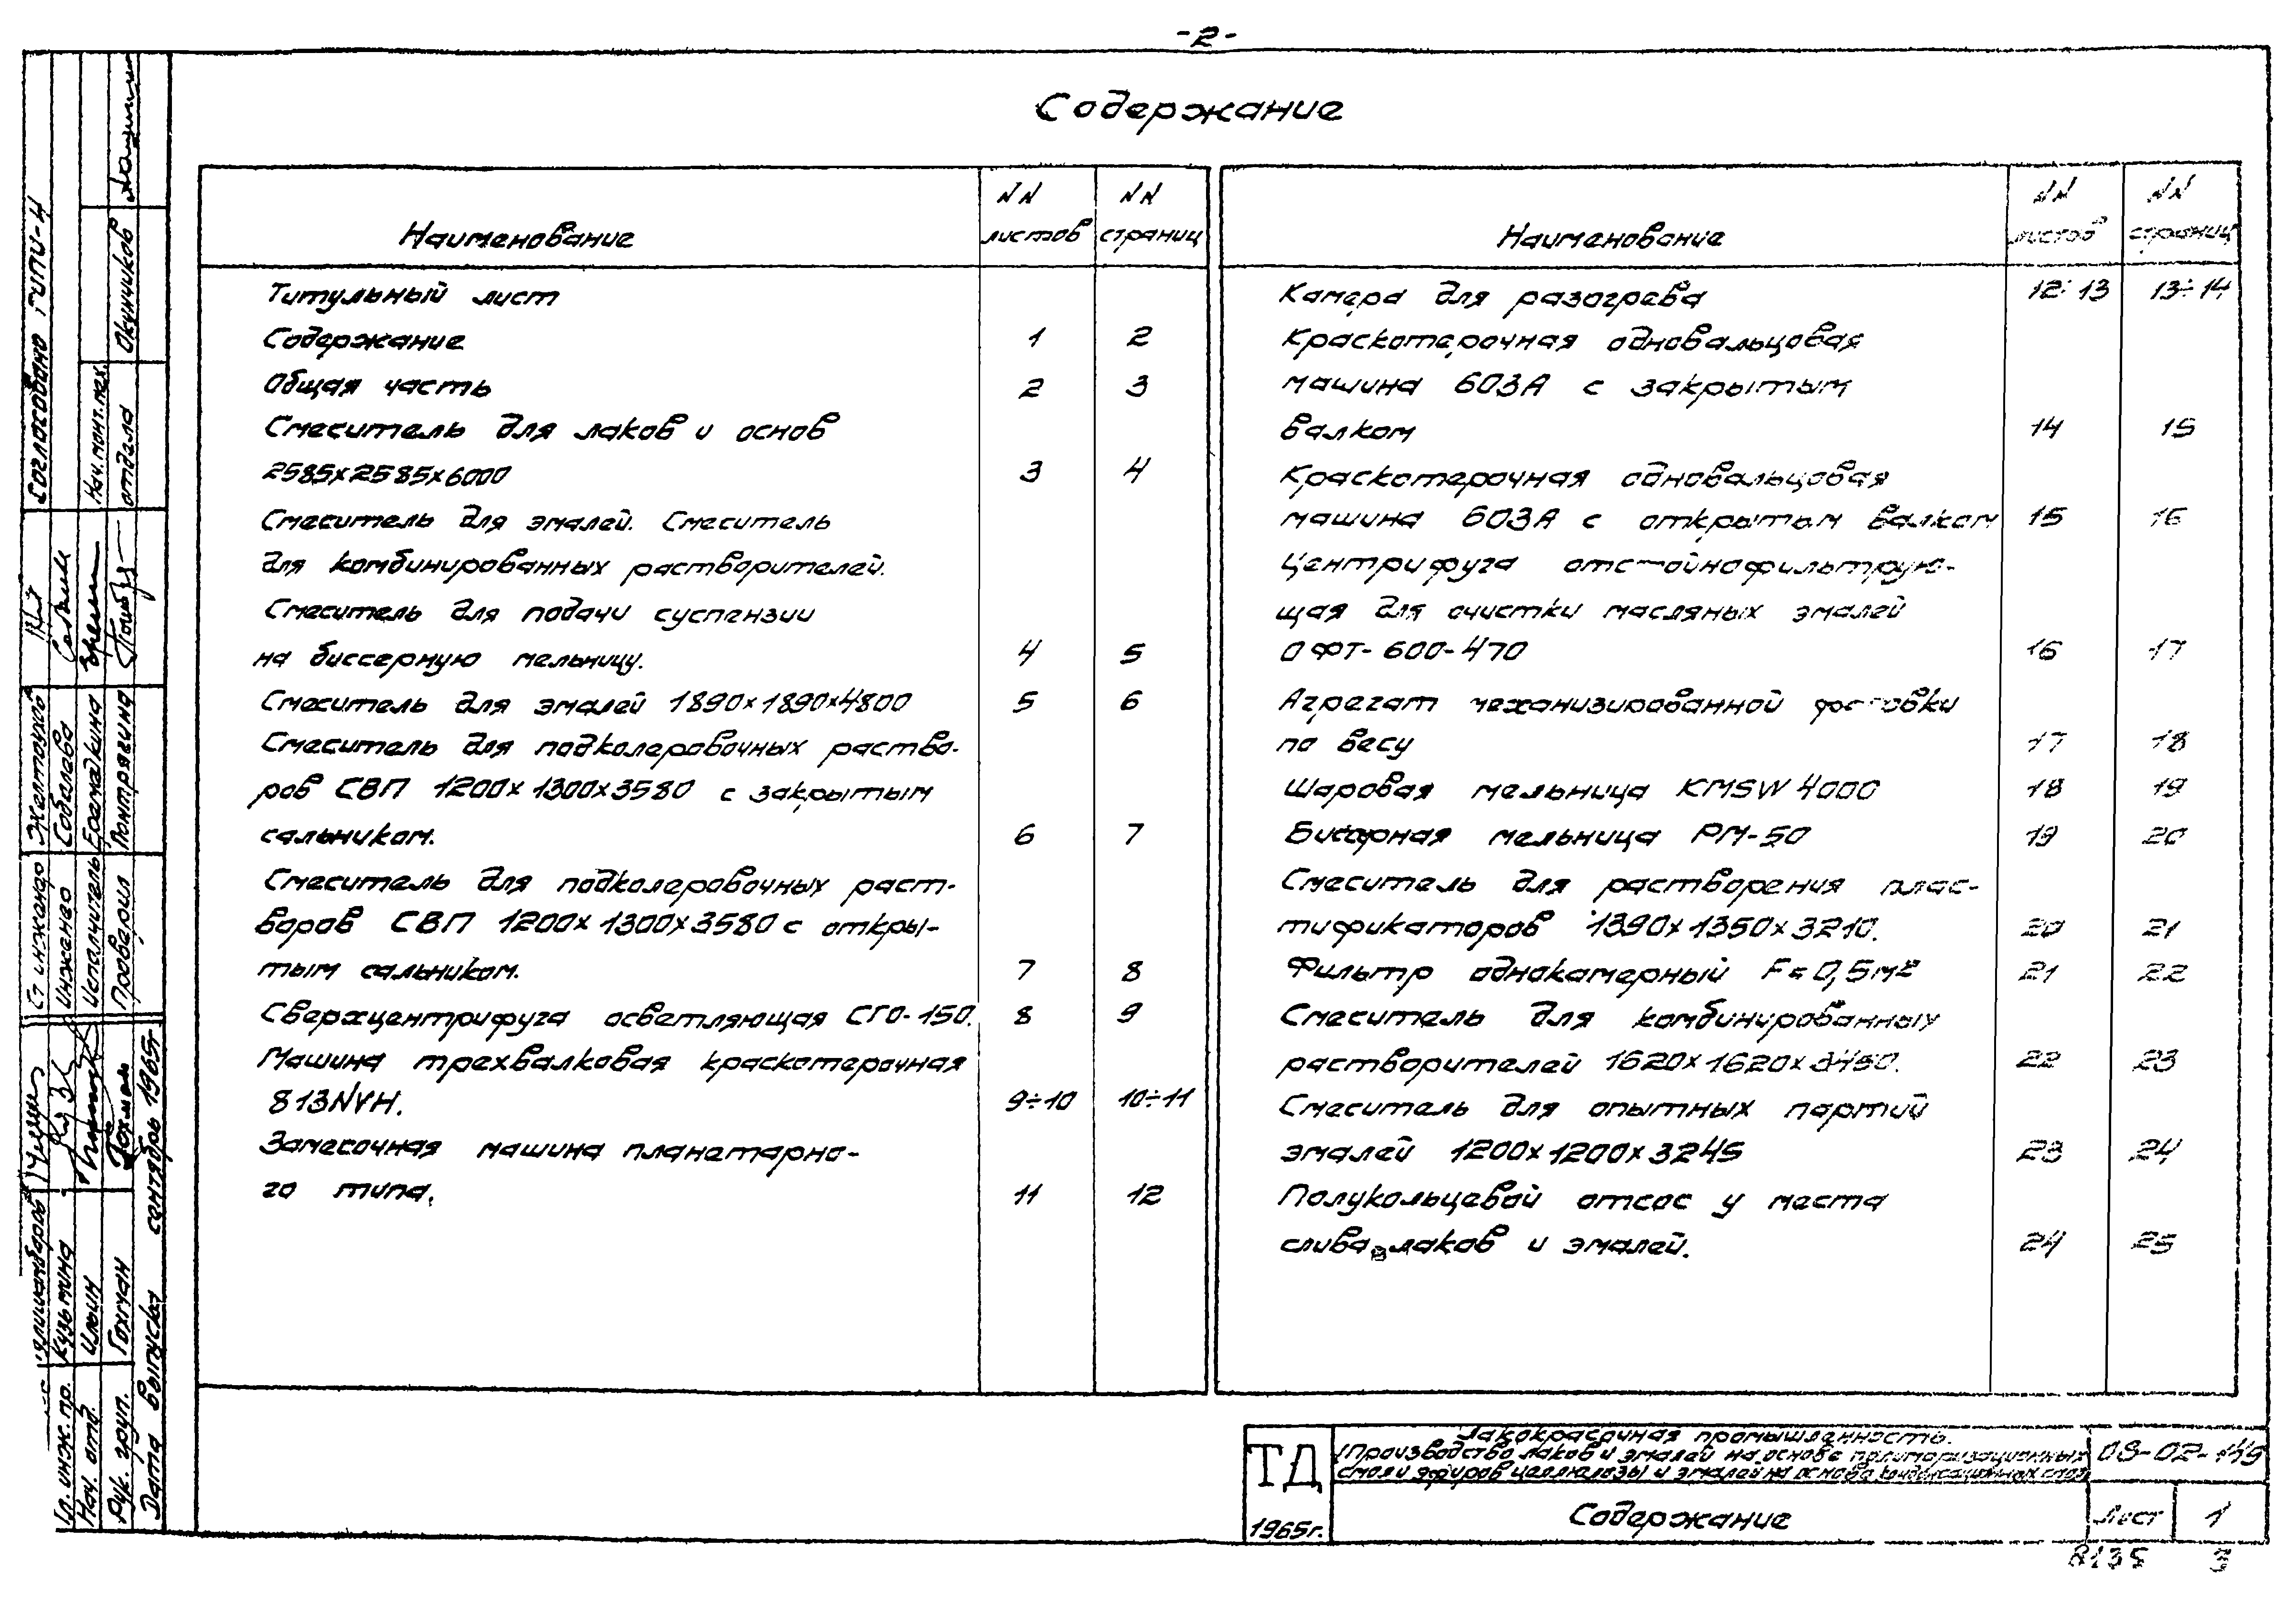 -2-
Содержание
Наименование
NN листов
NN страниц
Титульный лист
Содержание 1 2
Общая часть 2 3
Смеситель для лаков и основ
2585х2585х6000 3 4
Смеситель для эмалей. Смеситель
для комбинированных растворителей.
Смеситель для подачи суспензии
на биссерную мельницу. 4 5
Смеситель для эмалей 1890х1890х4800 5 6
Смеситель для подколеровочных раство-
ров СВП 1200х1300х3580 с закрытым
сальником. 6 7
Смеситель для подколеровочных раст-
воров СВП 1200х1300х3580 с откры-
тым сальником. 7 8
Сверхцентрифуга осветляющая СГО-150. 8 9
Машина трехвалковая краскотерочная
813NVH. 9÷10 10÷11
Замесочная машина планетарно-
го типа. 11 12
Наименование
NN листов
NN страниц
Камера для разогрева 12÷13 13÷14
Краскотерочная одновальцовая
машина 603А с закрытым
валком 14 15
Краскотерочная одновальцовая
машина 603А с открытым валком 15 16
Центрифуга отстойнофильтрую-
щая для очистки масляных эмалей
ОФТ-600-470 16 17
Агрегат механизированной фасовки
по весу 17 18
Шаровая мельница KMSW 4000 18 19
Бисерная мельница РМ-50 19 20
Смеситель для растворения плас-
тификаторов 1390х1350х3210. 20 21
Фильтр однокамерный F=0,5м² 21 22
Смеситель для комбинированных
растворителей 1620х1620х3450. 22 23
Смеситель для опытных партий
эмалей 1200х1200х3245 23 24
Полукольцевой отсос у места
слива лаков и эмалей. 24 25
Согласовано ГИПИ-4
Нач. монт. мех.
отдела Окунчиков
Ст инженер Желтоухов
Инженер Соболева
Исполнитель Ерамедкина
Проверил Понтрягина
Гл. инж. пр. Кузьмина
Нач. отд. Илюин
Рук. груп. Гохман
Дата выпуска сентябрь 1965г
ТД
1965г.
Лакокрасочная промышленность.
Производство лаков и эмалей на основе полимеризационных
смол и эфиров целлюлозы и эмалей на основе конденсационных смол
08-02-149
Содержание
Лист 1
8135 3